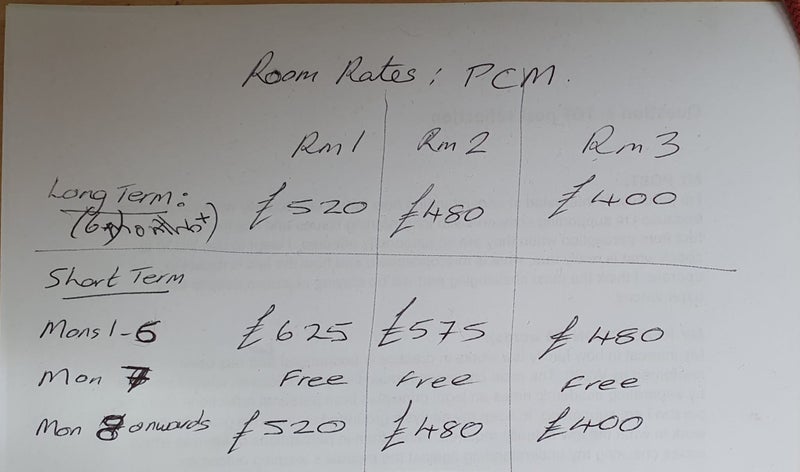 Room Rates: PCM.
Rm 1 Rm 2 Rm 3
Long Term: £520 £480 £400
(6 months+)
Short Term
Mons 1-6 £625 £575 £480
Mon 7 Free Free Free
Mon 8 onwards £520 £480 £400